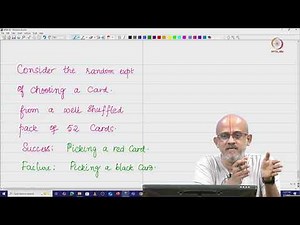 Consider the random expt
of choosing a Card
from a well shuffled
pack of 52 Cards.
Success: Picking a red Card.
Failure: Picking a black Card.